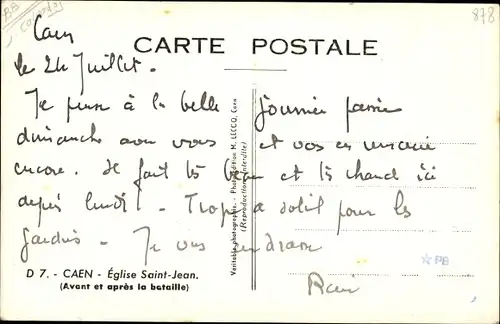 878
Caen
CARTE POSTALE
le 24 Juillet.
Je pense à la belle journée passée
dimanche avec vous et vous en remercie
encore. Il fait très beau et très chaud ici
depuis lundi. Trop de soleil pour les
jardins. Je vous embrasse
D 7. - CAEN - Église Saint-Jean.
(Avant et après la bataille)
Véritable photographie - Photo-édition M. LECCQ, Caen
(Reproduction interdite)
PB